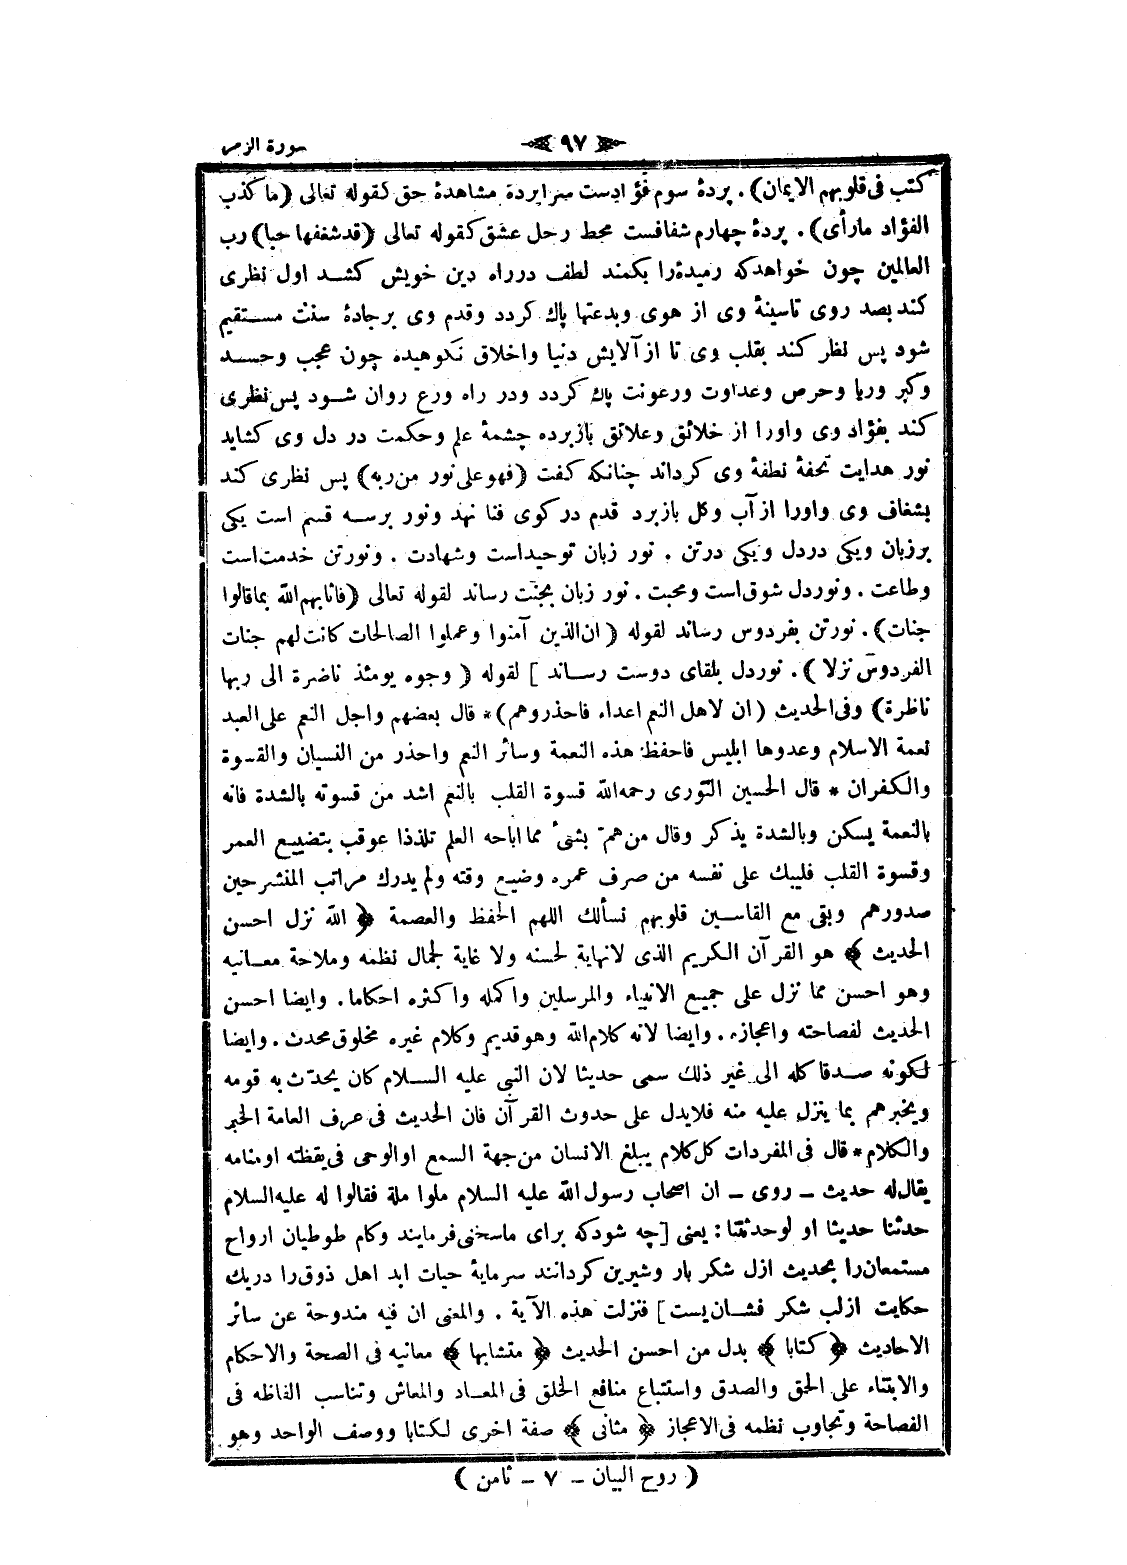 سورة الزمر
٩٧
كتب فى قلوبهم الايمان) . پردۀ سوم فؤادست سرا پردۀ مشاهدۀ حق كقوله تعالى (ما كذب
الفؤاد مارأى) . پردۀ چهارم شغافست محط رحل عشق كقوله تعالى (قدشغفها حبا) رب
العالمين چون خواهدكه رميدۀ را بكمند لطف درراه دين خويش كشد اول نظرى
كند بصدر وى تاسينۀ وى از هوى وبدعتها پاك كردد وقدم وى برجادۀ سنت مستقيم
شود پس نظر كند بقلب وى تا از آلايش دنيا واخلاق نكوهيده چون عجب وحسد
وكبر وريا وحرص وعداوت ورعونت پاك كردد ودر راه ورع روان شود پس نظرى
كند بفؤاد وى واورا از خلائق وعلائق بازبرده چشمۀ علم وحكمت در دل وى كشايد
نور هدايت تحفۀ نطفۀ وى كرداند چنانكه كفت (فهو على نور من ربه) پس نظرى كند
بشغاف وى واورا از آب وكل بازبرد قدم در كوى فنا نهد ونور برسه قسم است يكى
برزبان ويكى دردل ويكى درتن . نور زبان توحيداست وشهادت . ونورتن خدمت است
وطاعت . ونوردل شوق است ومحبت . نور زبان بجنت رساند لقوله تعالى (فاثابهم الله بما قالوا
جنات) . نورتن بفردوس رساند لقوله (ان الذين آمنوا وعملوا الصالحات كانت لهم جنات
الفردوس نزلا) . نوردل بلقاى دوست رساند ] لقوله ( وجوه يومئذ ناضرة الى ربها
ناظرة) وفى الحديث (ان لاهل النعم اعداء فاحذروهم) * قال بعضهم واجل النعم على العبد
نعمة الاسلام وعدوها ابليس فاحفظ هذه النعمة وسائر النعم واحذر من النسيان والقسوة
والكفران * قال الحسين النورى رحمه الله قسوة القلب بالنعم اشد من قسوته بالشدة فانه
بالنعمة يسكن وبالشدة يذكر وقال من هم بشئ مما اباحه العلم تلذذا عوقب بتضييع العمر
وقسوة القلب فليبك على نفسه من صرف عمره وضيع وقته ولم يدرك مراتب المنشرحين
صدورهم وبقى مع القاسين قلوبهم نسألك اللهم الحفظ والعصمة ﴿ الله نزل احسن
الحديث ﴾ هو القرآن الكريم الذى لانهاية لحسنه ولا غاية لجمال نظمه وملاحة معانيه
وهو احسن مما نزل على جميع الانبياء والمرسلين واكمله واكثره احكاما . وايضا احسن
الحديث لفصاحته واعجازه . وايضا لانه كلام الله وهو قديم وكلام غيره مخلوق محدث . وايضا
لكونه صدقا كله الى غير ذلك سمى حديثا لان النبى عليه السلام كان يحدث به قومه
ويخبرهم بما ينزل عليه منه فلايدل على حدوث القرآن فان الحديث فى عرف العامة الخبر
والكلام * قال فى المفردات كل كلام يبلغ الانسان من جهة السمع او الوحى فى يقظته او منامه
يقال له حديث ـ روى ـ ان اصحاب رسول الله عليه السلام ملوا ملة فقالوا له عليه السلام
حدثنا حديثا او لوحدثتنا : يعنى [ چه شودكه براى ما سخنى فرمايند وكام طوطيان ارواح
مستمعان را بحديث ازل شكر بار وشيرين كردانند سرمايۀ حيات ابد اهل ذوق را دريك
حكايت ازلب شكر فشان يست ] فنزلت هذه الآية . والمعنى ان فيه مندوحة عن سائر
الاحاديث ﴿ كتابا ﴾ بدل من احسن الحديث ﴿ متشابها ﴾ معانيه فى الصحة والاحكام
والابتناء على الحق والصدق واستتباع منافع الخلق فى المعاد والمعاش وتناسب الفاظه فى
الفصاحة وتجاوب نظمه فى الاعجاز ﴿ مثانى ﴾ صفة اخرى لكتابا ووصف الواحد وهو
( روح البيان ـ ٧ ـ ثامن )